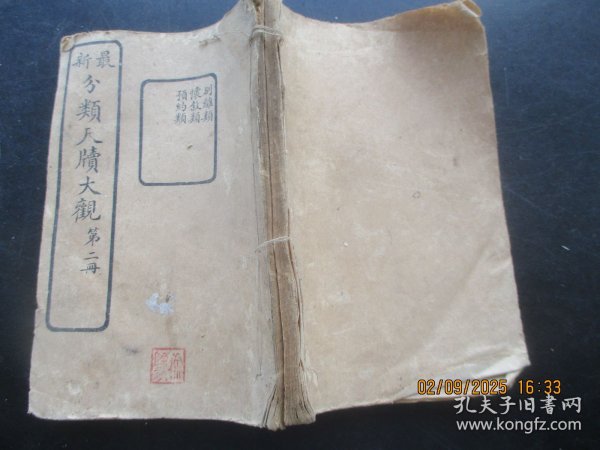 最新
分類尺牘大觀 第二冊
別離類
懷敘類
預約類
02/09/2025 16:33
孔夫子旧书网
www.kongfz.com